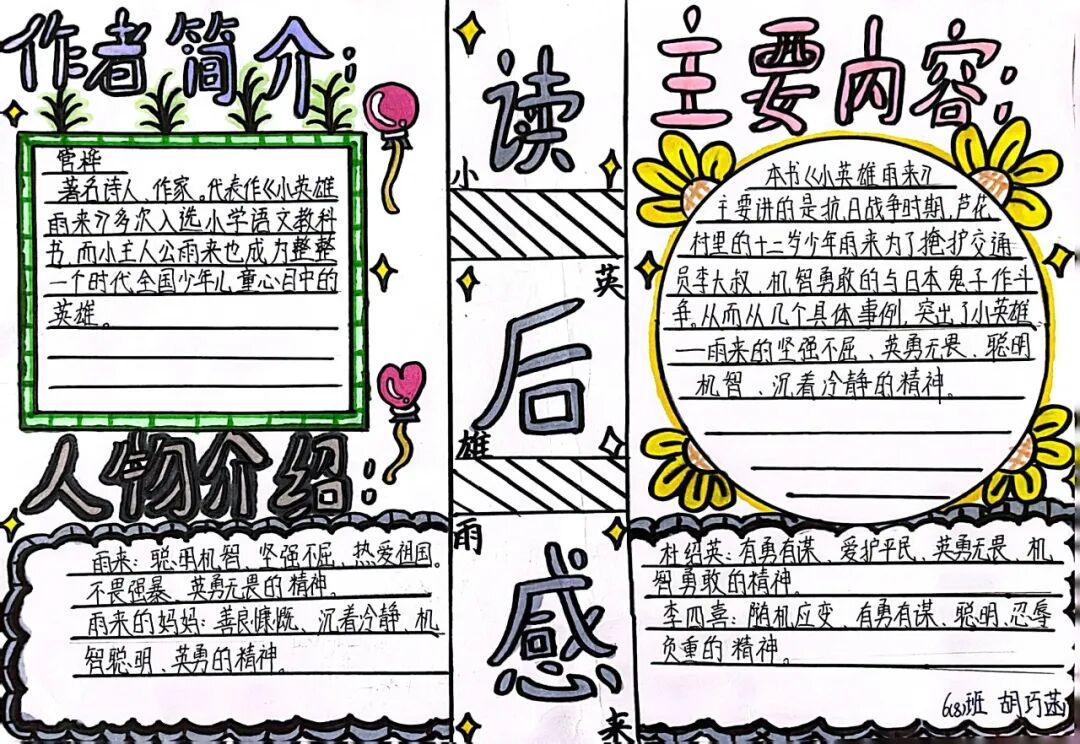 作者简介:
管桦
著名诗人、作家。代表作《小英雄
雨来》多次入选小学语文教科
书,而小主人公雨来也成为整整
一个时代,全国少年儿童心目中的
英雄。
人物介绍:
雨来:聪明机智、坚强不屈、热爱祖国。
不畏强暴、英勇无畏的精神。
雨来的妈妈:善良慷慨、沉着冷静、机
智聪明、英勇的精神。
读
后
感
小
英
雄
雨
来
主要内容:
本书《小英雄雨来》
主要讲的是抗日战争时期,芦花
村里的十二岁少年雨来为了掩护交通
员李大叔、机智勇敢的与日本鬼子作斗
争。从而从几个具体事例,突出了小英雄
—雨来的坚强不屈、英勇无畏、聪明
机智、沉着冷静的精神。
杜绍英:有勇有谋、爱护平民、英勇无畏、机
智勇敢的精神。
李四喜:随机应变、有勇有谋、聪明、忍辱
负重的精神。
6(8)班 胡巧菡